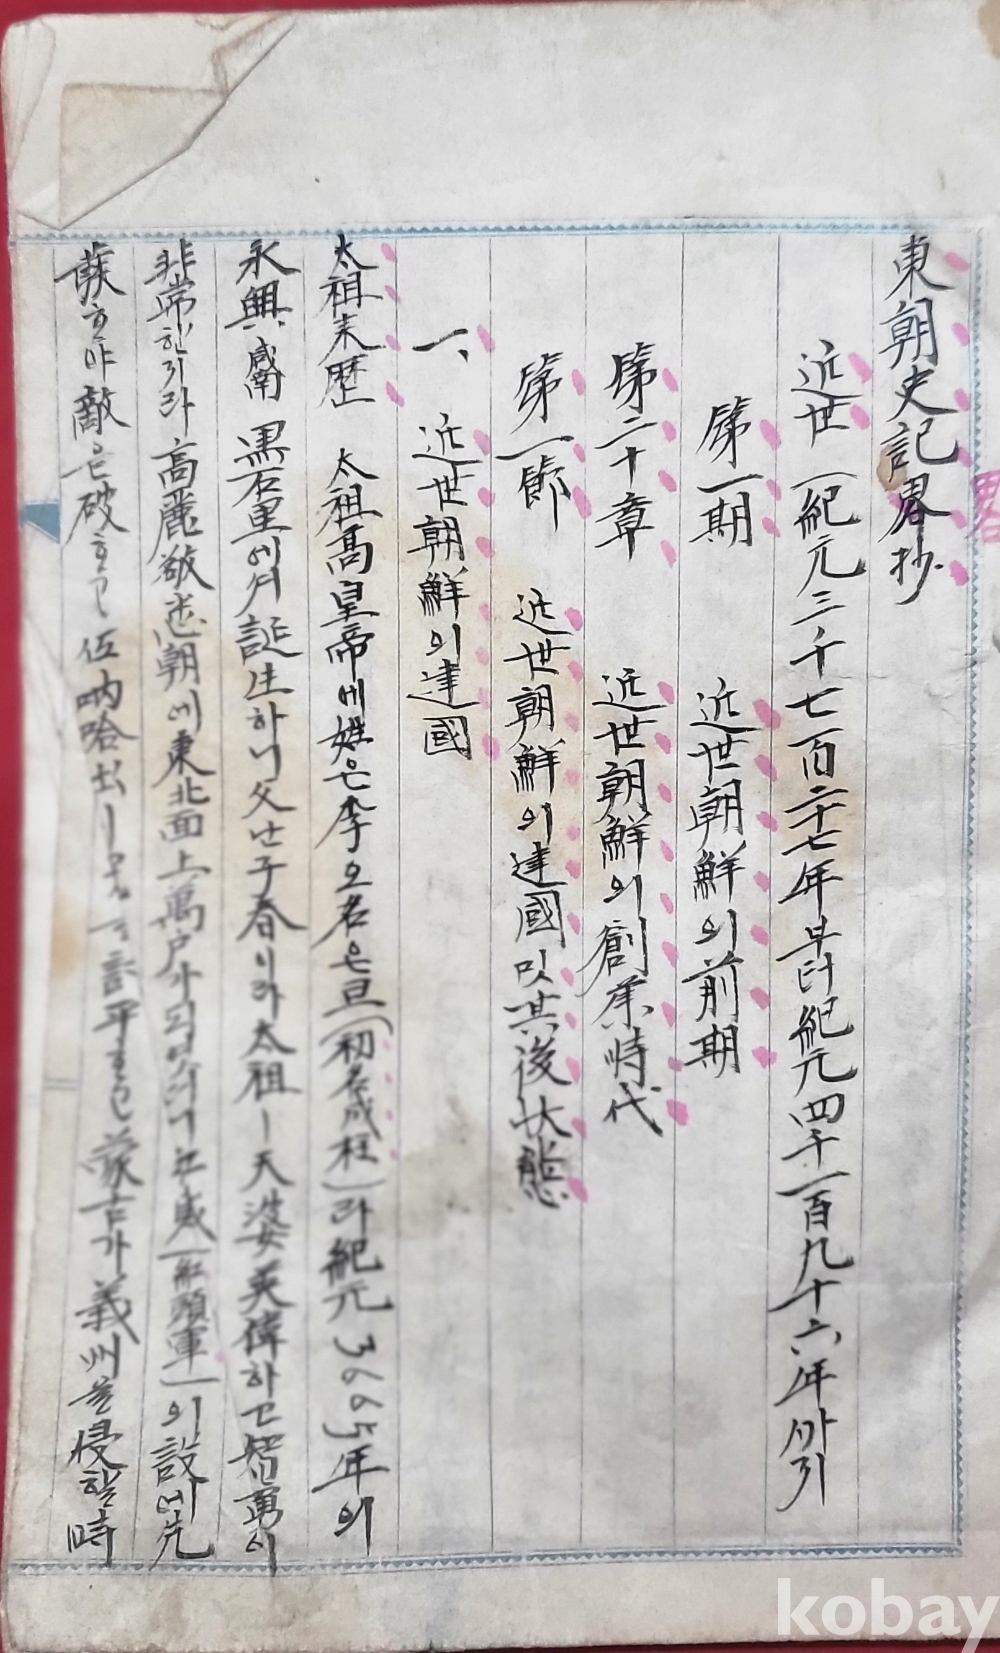 東朝史記畧抄
近世 (紀元三千七百二十七年부터紀元四千一百九十六年까지
第一期 近世朝鮮의前期
第二十章 近世朝鮮의創業時代
第一節 近世朝鮮의建國및其後狀態
一、 近世朝鮮의建國
太祖末歷 太祖高皇帝에姓은李오名은旦(初名成桂)라紀元3665年의
永興咸南黑石里에셔誕生하니父난子春이라太祖ㅣ天姿英偉하고智勇이
非常한지라高麗恭愍朝에東北面上萬户가되엿더니紅賊(紅頭軍)의設에先
蔟하야敵을破하고 納哈出ㅣ 討平하고蒙古가義州을侵할時
kobay